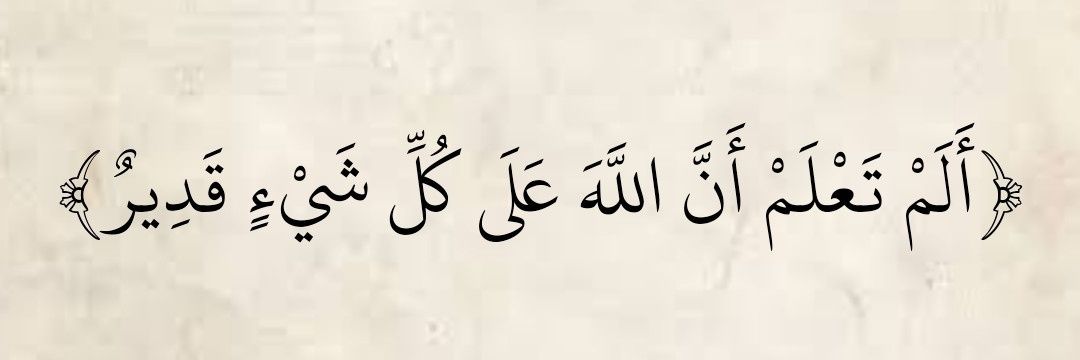 ﴿أَلَمْ تَعْلَمْ أَنَّ اللَّهَ عَلَى كُلِّ شَيْءٍ قَدِيرٌ﴾